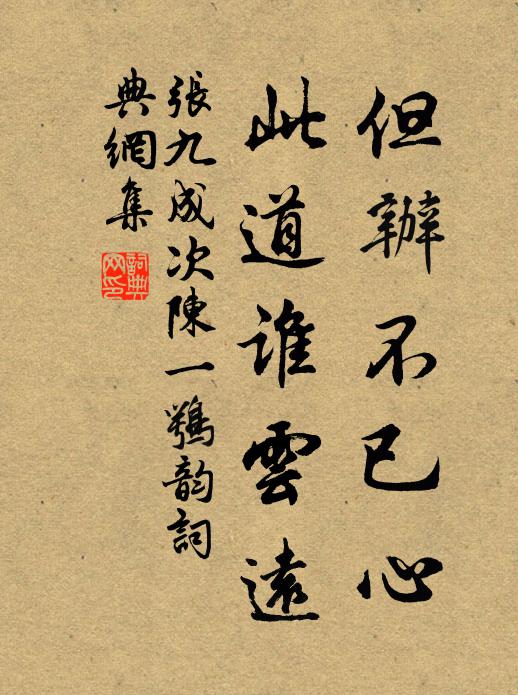 但辦不已心
此道誰雲遠
張九成次陳一鶚韵詞
典網集
詞典
网印